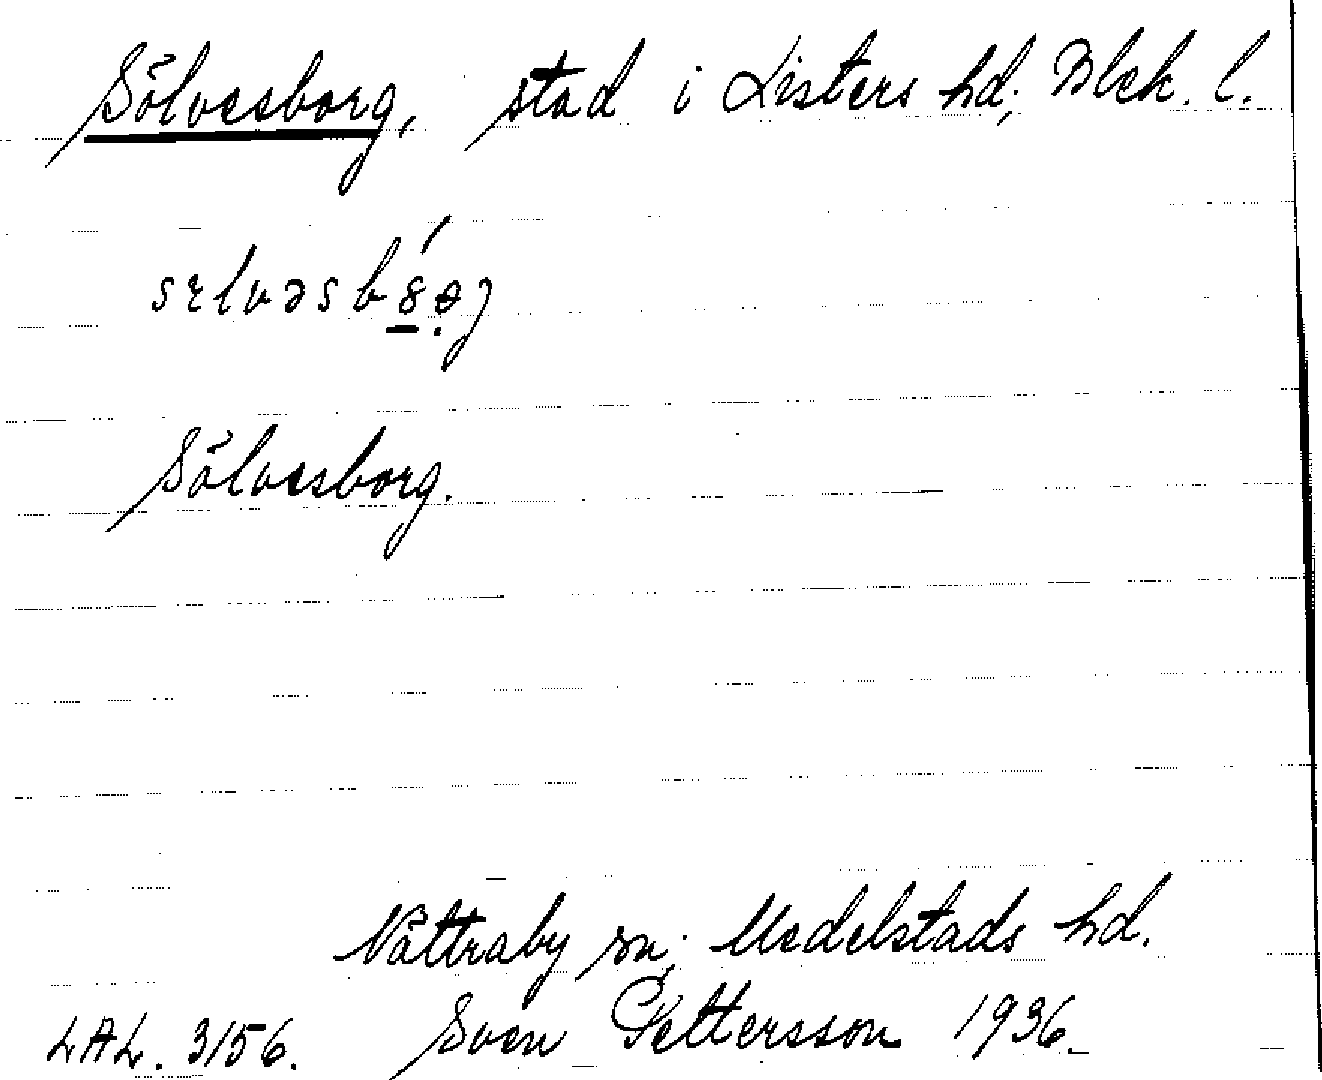 Sölvesborg, stad i Listers hd; Blek. l.
Sölvesborg.
Nättraby sn; Medelstads hd.
LAL. 3156. Sven Pettersson 1936.